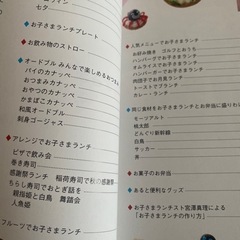 七夕
◆お子さまランチプレート
◆お飲み物のストロー
◆オードブル みんなで楽しめるおつまみ
パイのカナッペ
たまごのカナッペ
おやつのカナッペ
かまぼこカナッペ
和風オードブル
刺身ゴージャス
◆アレンジでお子さまランチ
ピザで飲み会
巻き寿司
感謝祭ランチ 稲荷寿司で秋の感謝祭
ちらし寿司でおとぎ話を
親指姫と白鳥 舞踏会
人魚姫
フルーツでお子さまランチ
◆人気メニューでお子さまランチ
お好み焼き ゴルフとおうち
ハンバーグでお子さまランチ
オムライスでお子さまランチ
ハンバーガーでお子さまランチ
肉団子でお月見
トーストでお子さまランチ
カレーランチ
◆同じ素材をお子さまランチとお弁当に
モーツアルト
桃太郎
どんぐり新幹線
白鳥
サッカー
舟
◆お菓子のお弁当
◆あると便利なグッズ
◆お子さまランチスト宮澤真理による
「お子さまランチの作り方」